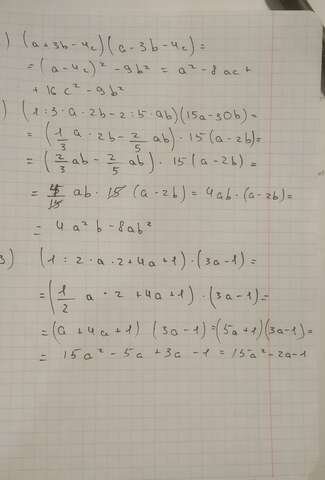 ) (a+3b-4c)(a-3b-4c)=
=(a-4c)²-9b²=a²-8ac+
+16c²-9b²
) (1:3·a·2b-2:5·ab)(15a-30b)=
=(1/3 a·2b-2/5 ab)·15(a-2b)=
=(2/3 ab-2/5 ab)·15(a-2b)=
=4/15 ab·15(a-2b)=4ab·(a-2b)=
=4a²b-8ab²
3) (1:2·a·2+4a+1)·(3a-1)=
=(1/2 a·2+4a+1)·(3a-1)=
=(a+4a+1)(3a-1)=(5a+1)(3a-1)=
=15a²-5a+3a-1=15a²-2a-1